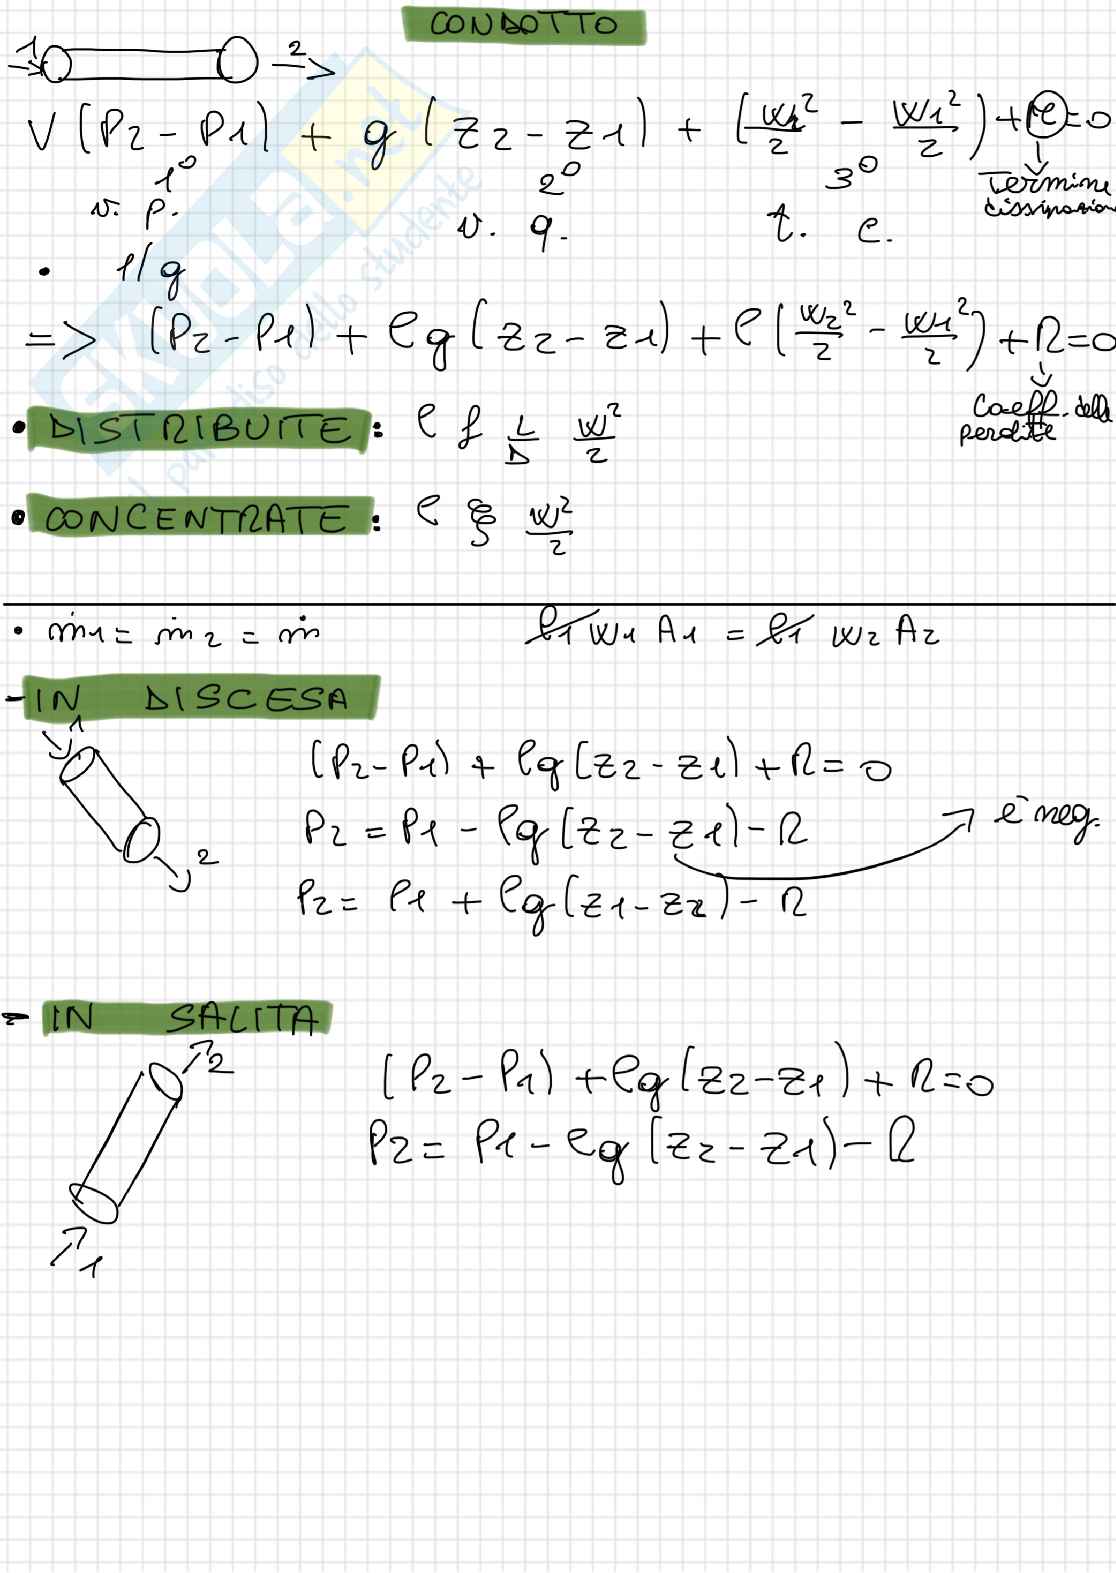 CONDOTTO
1 2
V (P2 - P1) + g (z2 - z1) + (w2²/2 - w1²/2) + r = 0
1° 2° 3° Termine
v. p. v. q. t. c. dissipazion
• 1/g
=> (P2 - P1) + ρg (z2 - z1) + ρ (w2²/2 - w1²/2) + R = 0
Coeff. delle
perdite
• DISTRIBUITE: ρ f L/D w²/2
• CONCENTRATE: ρ ξ w²/2
• ṁ1 = ṁ2 = ṁ ρ1 w1 A1 = ρ1 w2 A2
- IN DISCESA
1
(P2 - P1) + ρg (z2 - z1) + R = 0
P2 = P1 - ρg (z2 - z1) - R è neg.
2
P2 = P1 + ρg (z1 - z2) - R
- IN SALITA
2
(P2 - P1) + ρg (z2 - z1) + R = 0
P2 = P1 - ρg (z2 - z1) - R
1
SKUOLA.net
paradiso dello studente